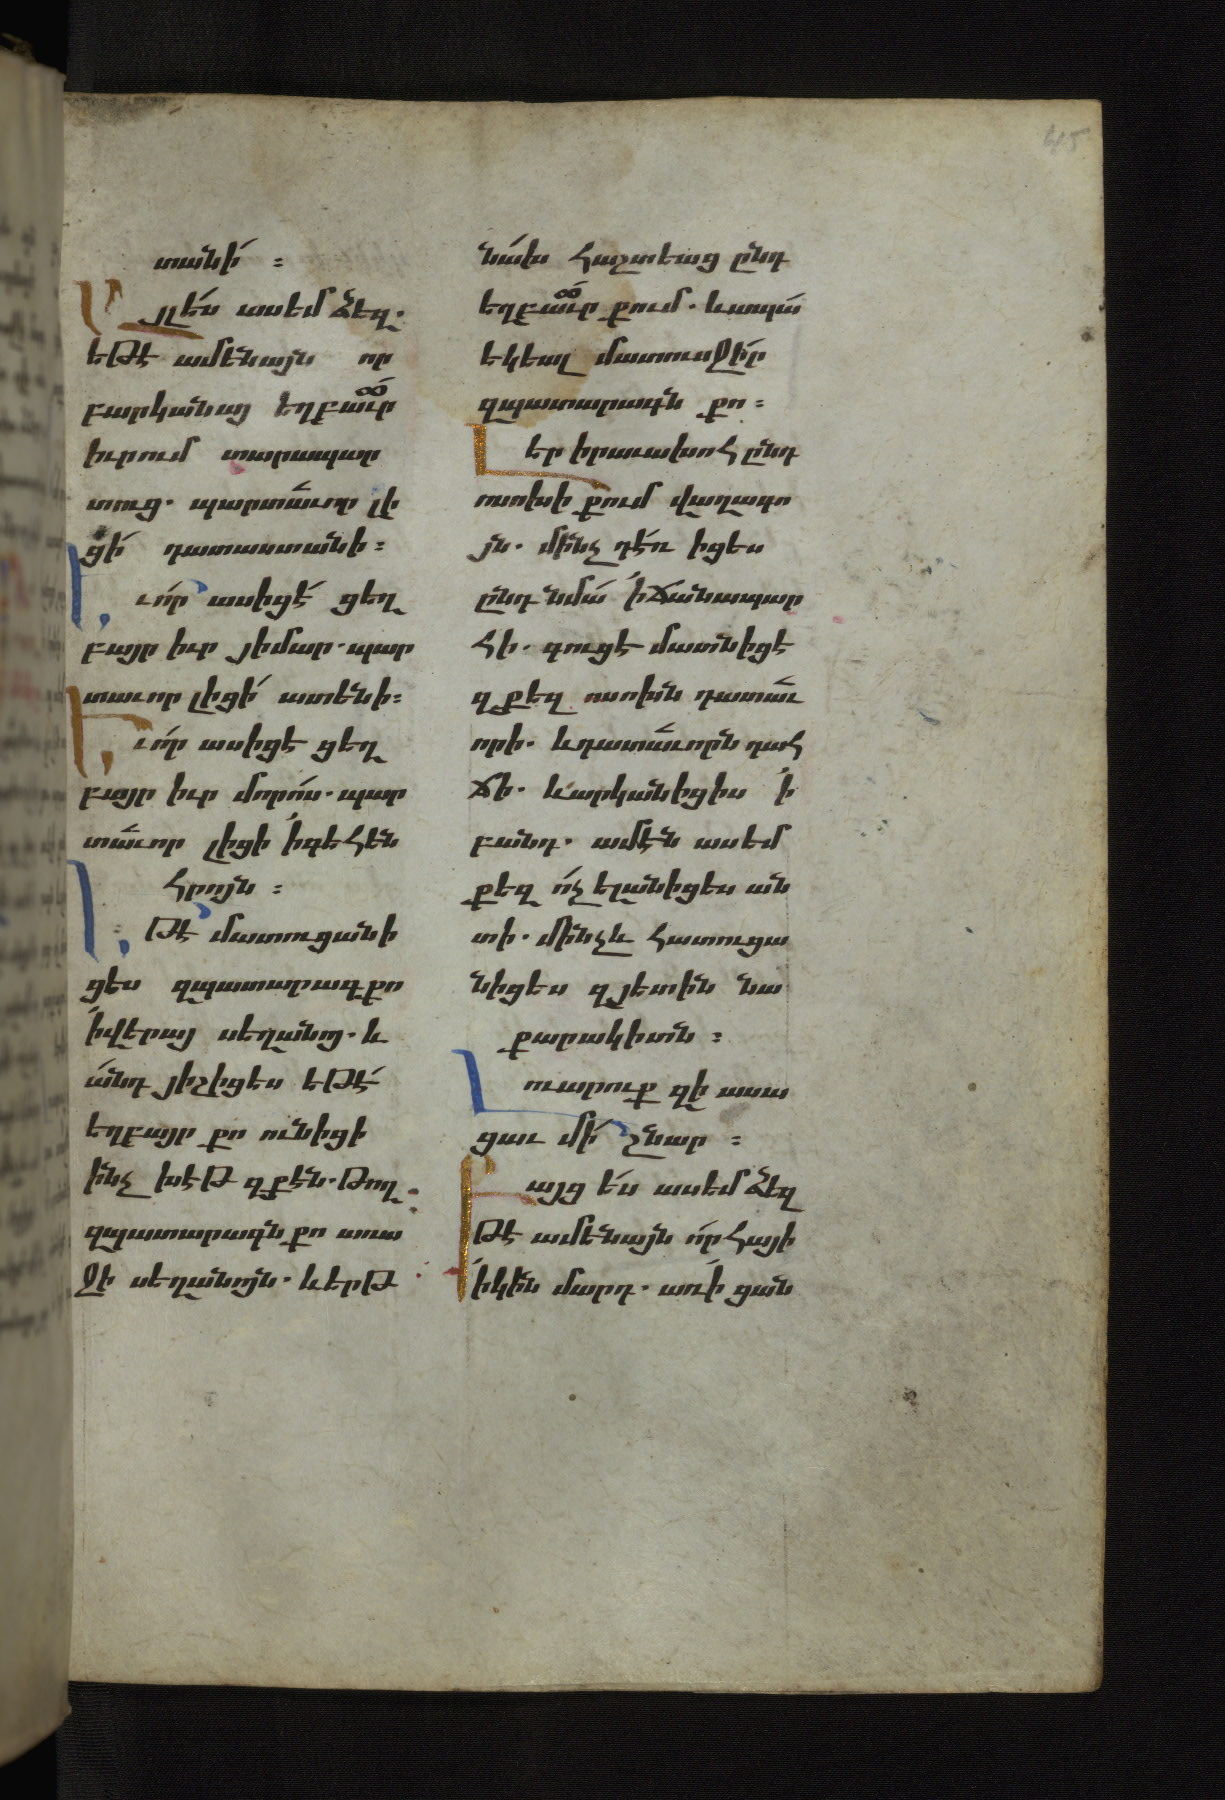 տանի :
Այլ ես ասեմ ձեզ.
եթէ ամենայն որ
բարկանայ եղբաւր
իւրում տարապար
տուց. պարտաւոր լի
ցի դատաստանի :
Եւ որ ասիցէ ցեղ
բայր իւր յիմար. պար
տաւոր լիցի ատենի :
Եւ որ ասիցէ ցեղ
բայր իւր մորոս. պար
տաւոր լիցի ի գեհեն
հրոյն :
Եթէ մատուցանի
ցես զպատարագ քո
ի վերայ սեղանոյ. և
անդ յիշիցես եթէ
եղբայր քո ունիցի
ինչ խէթ զքէն. թող
զպատարագն քո առա
ջի սեղանոյն. և երթ
նախ հաշտեաց ընդ
եղբաւր քում. և ապա
եկեալ մատուսջիր
զպատարագն քո :
Լեր իրաւախոհ ընդ
ոսոխի քում վաղագո
յն. մինչ դեռ իցես
ընդ նմա ի ճանապար
հի. գուցէ մատնիցէ
զքեզ ոսոխն դատաւ
որի. և դատաւորն դահ
ճի. և արկանիցիս ի
բանդ. ամէն ասեմ
քեզ ոչ ելանիցես ան
տի. մինչև հատուցա
նիցես զյետին նա
քարակիտն :
Լուարուք զի ասա
ցաւ մի շնար :
Բայց ես ասեմ ձեզ
թէ ամենայն որ հայի
ի կին մարդ. առ ի ցան
45